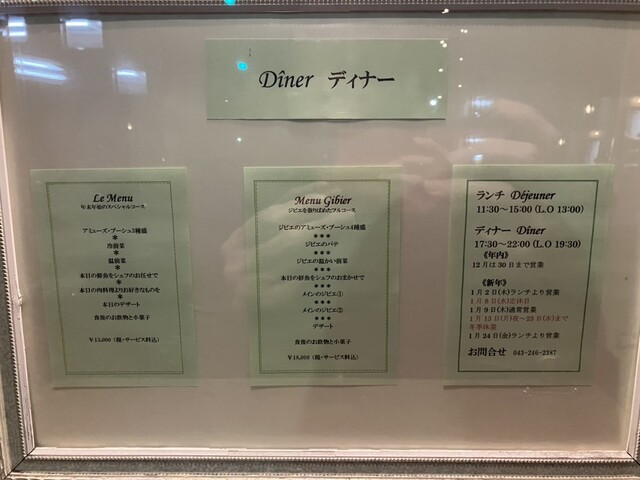 Dîner ディナー
Le Menu
年末年始のスペシャルコース
アミューズ・ブーシュ3種盛
*
冷前菜
*
温前菜
*
本日の鮮魚をシェフのお任せで
*
本日の肉料理よりお好きなものを
*
本日のデザート
食後のお飲物と小菓子
￥13,000（税・サービス料込）
Menu Gibier
ジビエを散りばめたフルコース
ジビエのアミューズ・ブーシュ4種盛
***
ジビエのパテ
***
ジビエの温かい前菜
***
本日の鮮魚をシェフのおまかせで
***
メインのジビエ①
***
メインのジビエ②
***
デザート
食後のお飲物と小菓子
￥18,000（税・サービス料込）
ランチ Déjeuner
11:30～15:00 (L.O 13:00)
ディナー Dîner
17:30～22:00 (L.O 19:30)
《年内》
12月は30日まで営業
《新年》
1月2日(木)ランチより営業
1月8日(水)定休日
1月9日(木)通常営業
1月13日(月)夜～23日(木)まで
冬季休業
1月24日(金)ランチより営業
お問合せ 043-246-2387